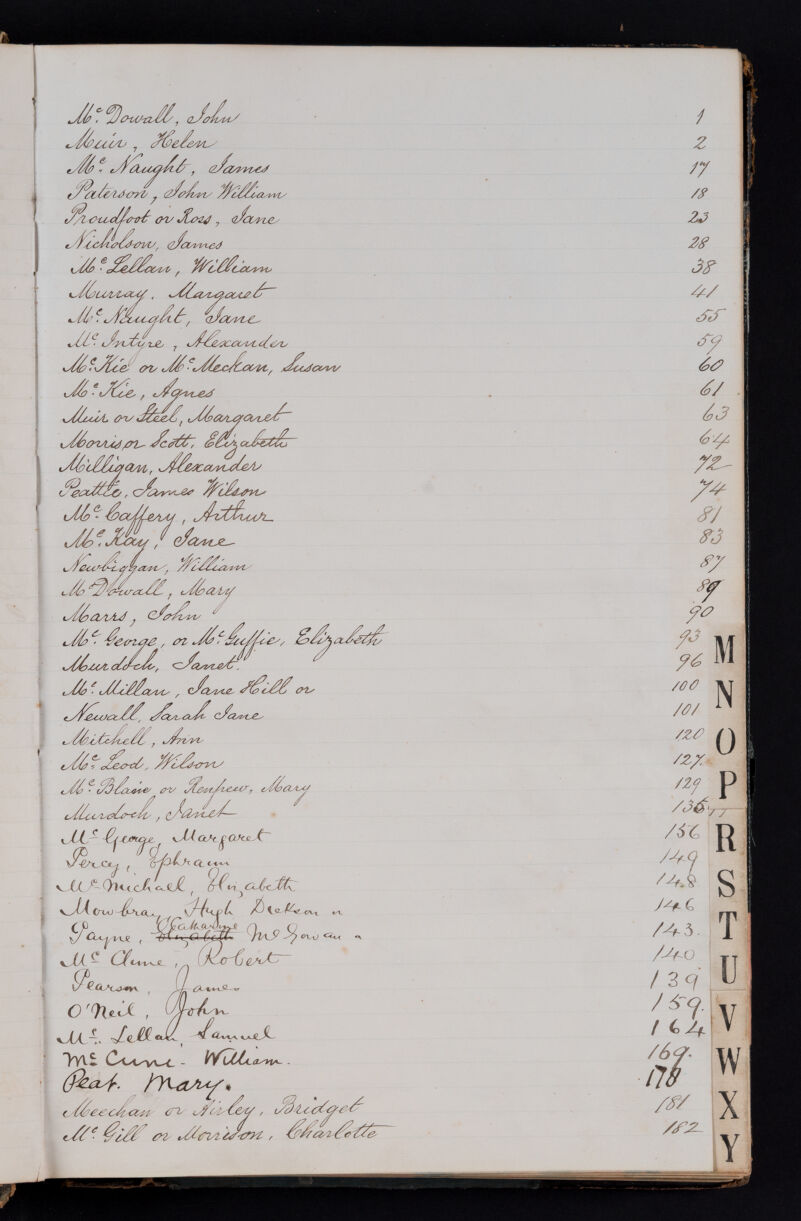 Mc. Dowall, John 1
Muir, Helen 2
Mc. Naught, James 17
Paterson, John William 18
Proudfoot or Ross, Jane 23
Nicholson, James 28
Mc. Lellan, William 38
Murray. Margaret 41
Mc. Naught, Jane 55
Mc. Intyre, Alexander 59
Mc. Kie or Mc. Meckan, Susan 60
Mc. Kie, Agnes 61
Muir or Steel, Margaret 63
Morris or Scott, Elizabeth 64
Milligan, Alexander 72
Peattie, James Wilson 74
Mc. Caffery, Arthur 81
Mc. Kay, Jane 83
Newbiggan, William 87
Mc Dowall, Mary 89
Marrs, John 90
Mc. George, or Mc. Guffie, Elizabeth 93
Murdoch, Janet. 96
Mc. Millan, Jane Hill or 100
Newall, Sarah Jane 101
Mitchell, Ann 120
Mc. Leod, Wilson 127.
Mc. Blain, or Renfrew, Mary 129
Murdoch, Janet 135
Mc George, Margaret 156
Percy, Ephraim 149
Mc Michael, Elizabeth 148
Mowbray, Hugh Dickson or 146
Catharine
Payne, Elizabeth McGowan or 143.
Mc Clune, Robert 140
Pearson, James 139
O'Neil, John 159.
Mc. Lellan, Samuel 164
Mc Cune - William. 169.
Peat. Mary. 178
Meechan or Kirley, Bridget 181
Mc. Gill or Morrison, Charlotte 182
M
N
O
P
R
S
T
U
V
W
X
Y